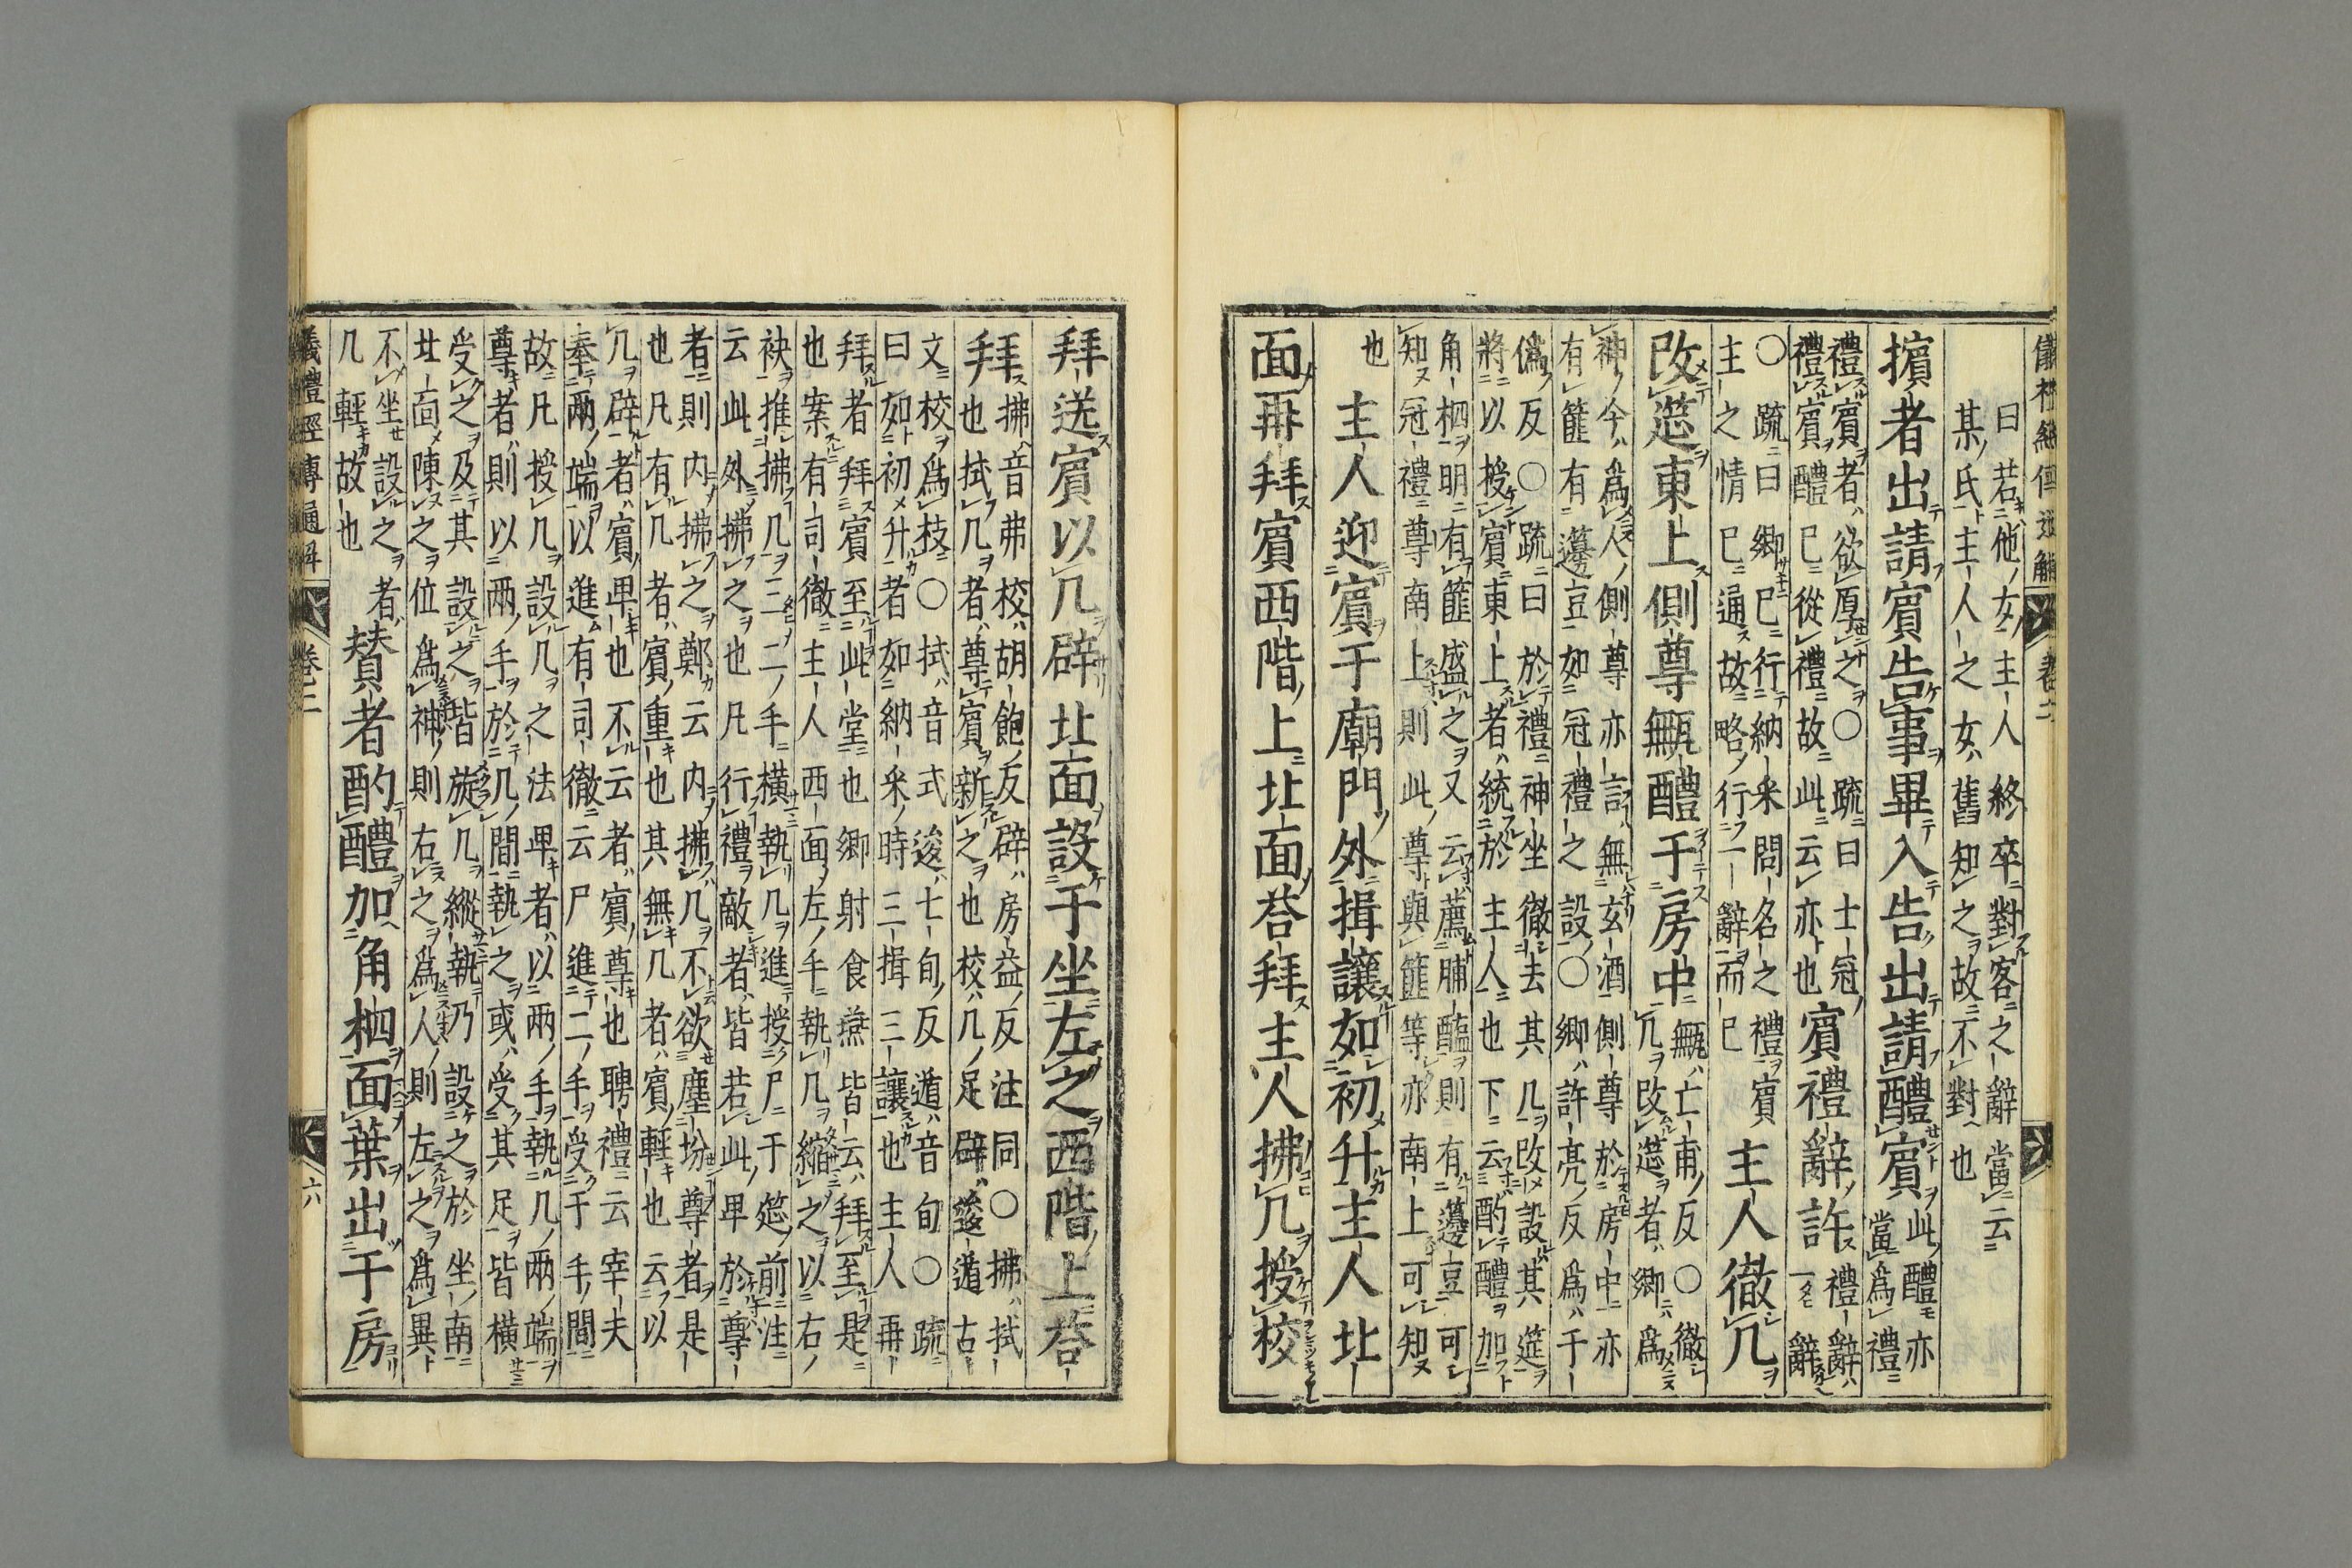 儀禮經傳通解 卷二
曰若他女主人終卒對客之辭當云
某氏主人之女舊知之故不對也
擯者出請賓告事畢入告出請醴賓此醴亦
當爲禮
禮賓者欲厚之〇疏曰士冠
禮賓醴已從禮故此云亦也賓禮辭許禮辭
一辭
〇疏曰鄉已行納采問名之禮賓
主之情已通故略行一辭而已主人徹几
改筵東上側尊甒醴于房中甒亡甫反〇徹
几改筵者鄉爲
神今爲人側尊亦言無玄酒側尊於房中亦
有篚有籩豆如冠禮之設〇鄉許亮反爲于
僞反〇疏曰於禮神坐徹去其几改設其筵
將以授賓東上者統於主人也下云酌醴加
角柶明有篚盛之又云薦脯醢則有籩豆可
知冠禮尊南上則此尊與篚等亦南上可知
也主人迎賓于廟門外揖讓如初升主人北
面再拜賓西階上北面荅拜主人拂几授校
拜送賓以几辟北面設于坐左之西階上荅
拜拂音弗校胡飽反辟房益反注同〇拂拭
也拭几者尊賓新之也校几足辟逡遁古
文校爲枝〇拭音式逡七旬反遁音旬〇疏
曰如初升者如納采時三揖三讓也主人再
拜者拜賓至此堂也鄉射食燕皆云拜至是
也案有司徹主人西面左手執几縮之以右
袂推拂几二手橫執几進授尸于筵前注
云此外拂之也凡行禮敵者皆若此卑於尊
者則內拂之鄭云內拂几不欲塵坋尊者是
也凡有几者賓重也其無几者賓輕也云以
几辟者賓卑也不云者賓尊也聘禮云宰夫
奉兩端以進有司徹云尸進二手受于手間
故凡授几設几之法卑者以兩手執几兩端
尊者則以兩手於几間執之或受其足皆橫
受之及其設之皆旋几縱執乃設之於坐南
北面陳之位爲神則右之爲人則左之爲異
不坐設之者
几輕故也贊者酌醴加角柶面葉出于房
儀禮經傳通解 卷二 六